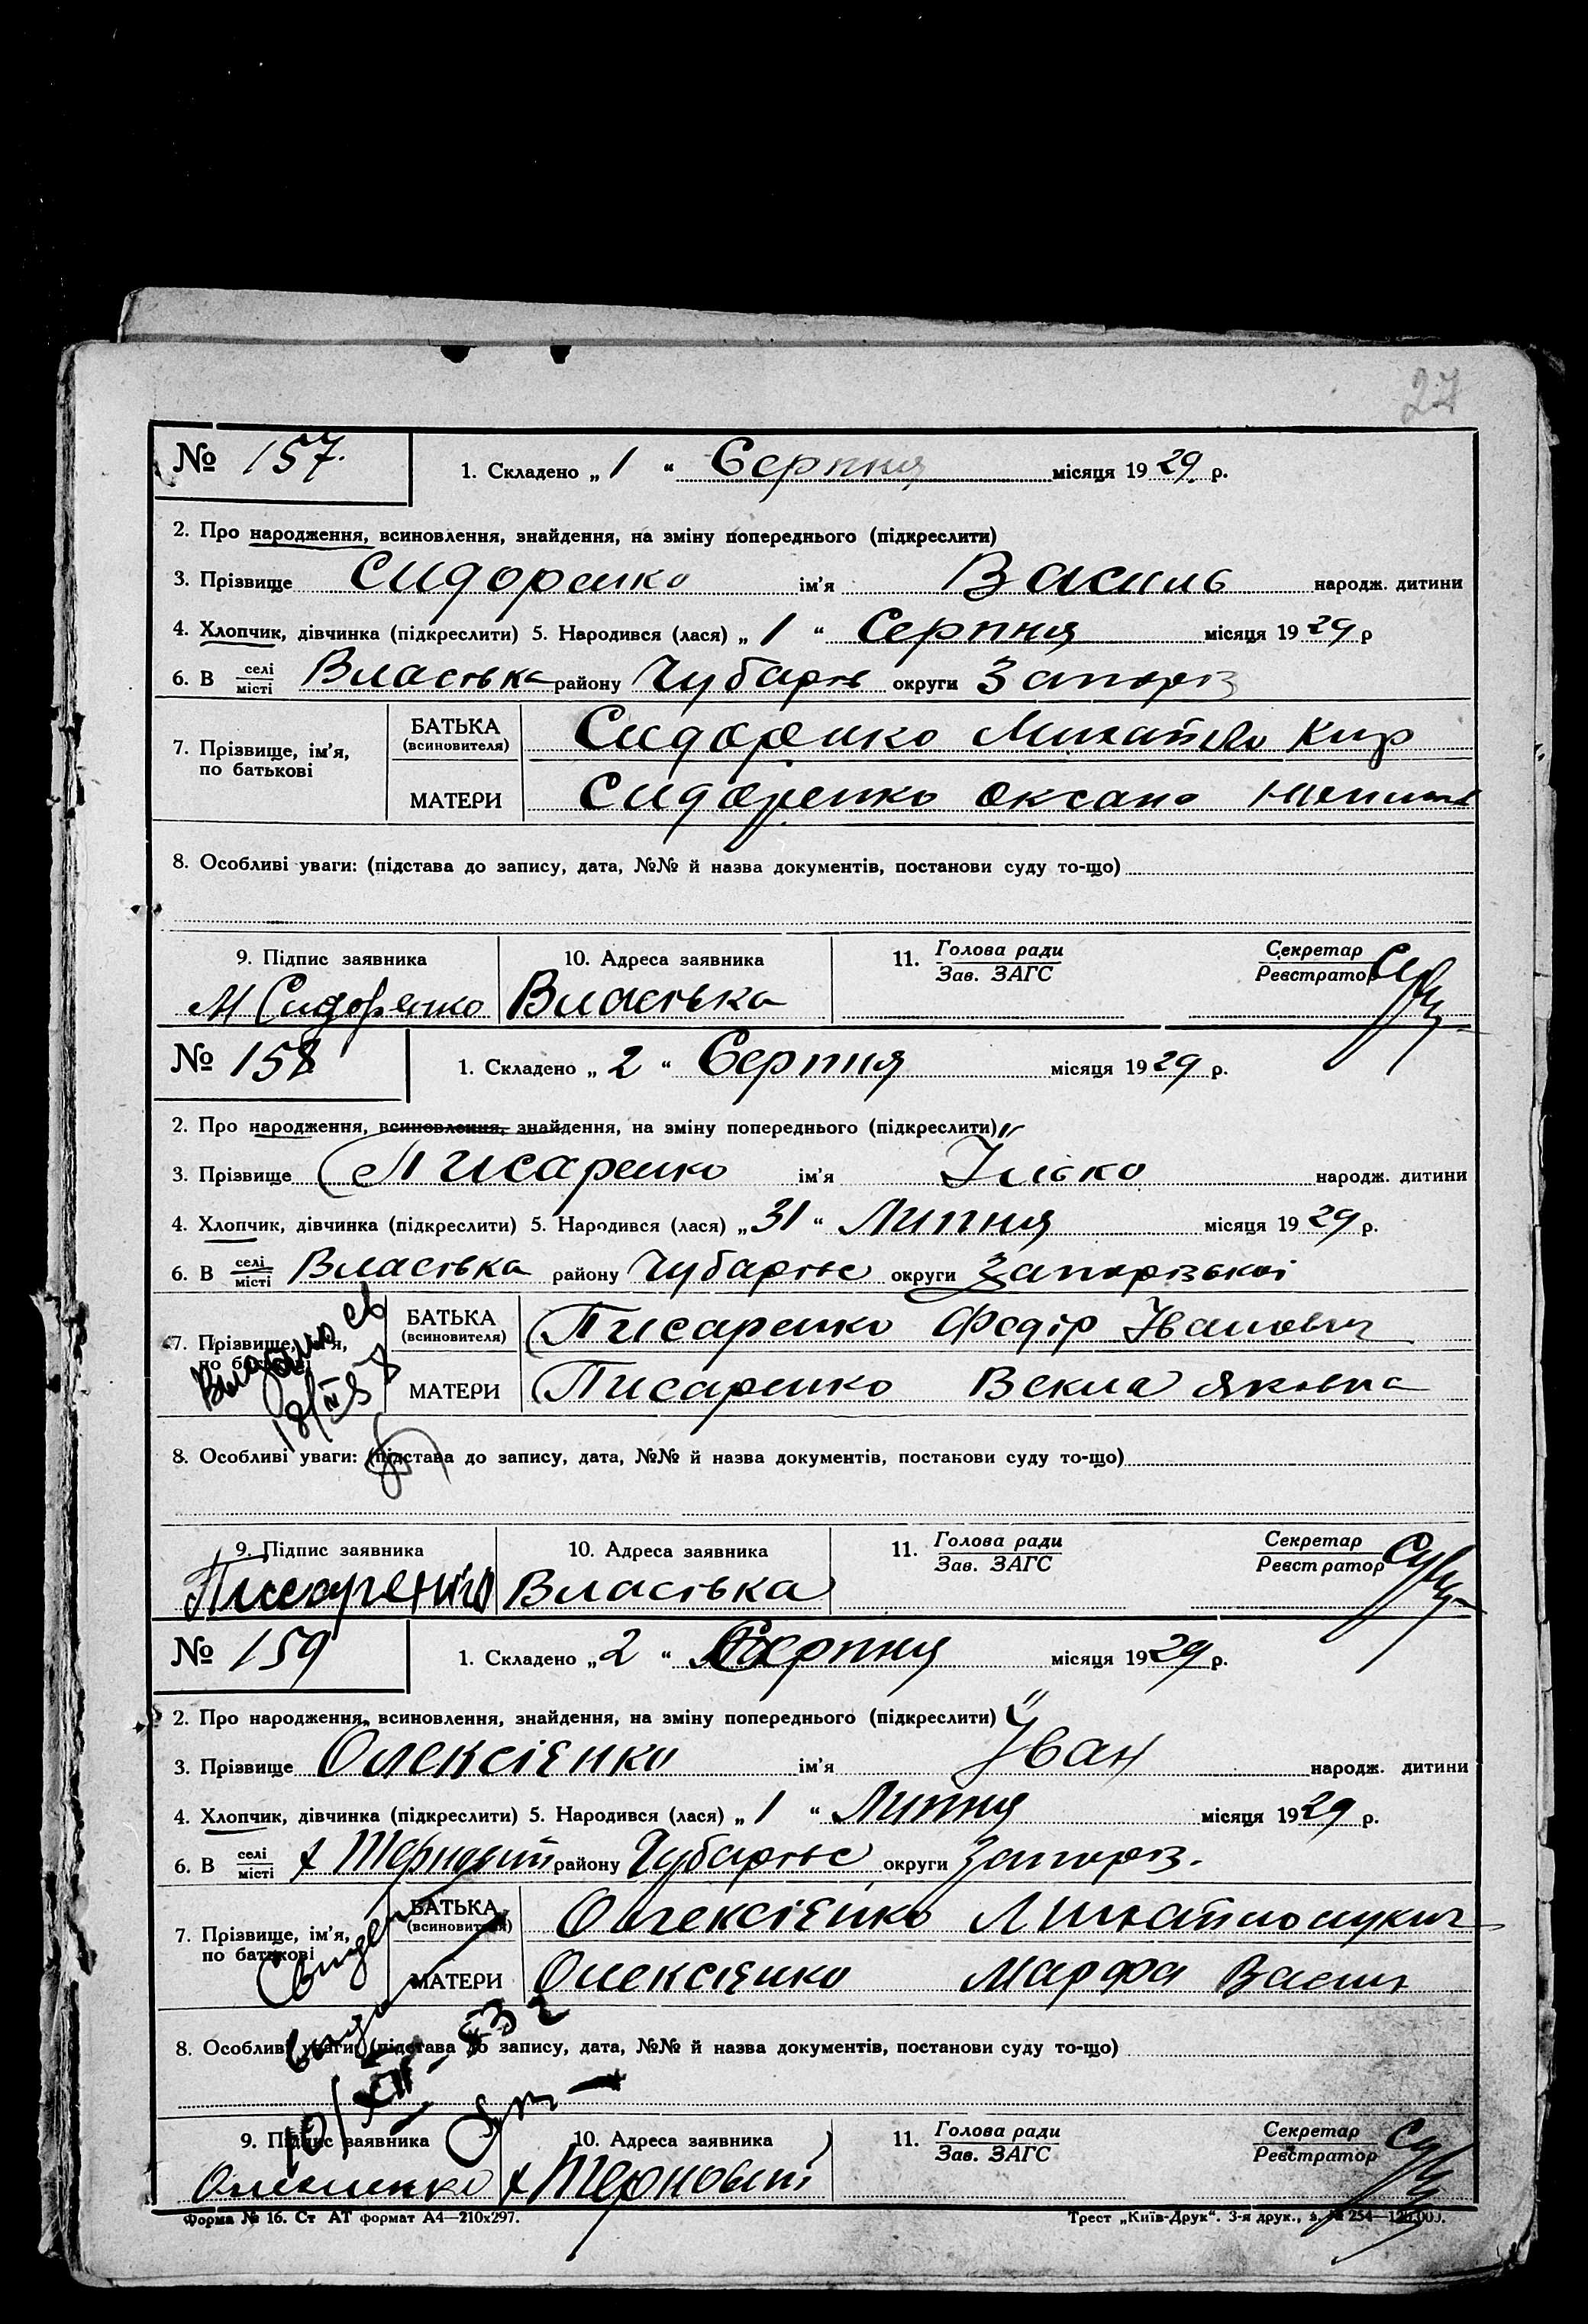 27
№ 157. 1. Складено „ 1 “ Серпня місяця 19 29 р.
2. Про народження, всиновлення, знайдення, на зміну попереднього (підкреслити)
3. Прізвище Сидоренко ім’я Василь народж. дитини
4. Хлопчик, дівчинка (підкреслити) 5. Народився (лася) „ 1 “ Серпня місяця 19 29 р
6. В селі місті Власівка району Чубарів округи Запоріз
7. Прізвище, ім’я, по батькові БАТЬКА (всиновителя) Сидоренко Михайло Кир
МАТЕРИ Сидоренко Оксана
8. Особливі уваги: (підстава до запису, дата, №№ й назва документів, постанови суду то-що)
9. Підпис заявника 10. Адреса заявника 11. Голова ради Зав. ЗАГС Секретар Реєстратор
М Сидоренко Власівка
№ 158 1. Складено „ 2 “ Серпня місяця 19 29 р.
2. Про народження, всиновлення, знайдення, на зміну попереднього (підкреслити)
3. Прізвище Писаренко ім’я Ілько народж. дитини
4. Хлопчик, дівчинка (підкреслити) 5. Народився (лася) „ 31 “ Липня місяця 19 29 р.
6. В селі місті Власівка району Чубарівс округи Запорізької
7. Прізвище, ім’я, по батькові БАТЬКА (всиновителя) Писаренко Федір Іванович
МАТЕРИ Писаренко Векла Яковна
8. Особливі уваги: (підстава до запису, дата, №№ й назва документів, постанови суду то-що)
9. Підпис заявника 10. Адреса заявника 11. Голова ради Зав. ЗАГС Секретар Реєстратор
Писаренко Власівка
№ 159 1. Складено „ 2 “ Серпня місяця 19 29 р.
2. Про народження, всиновлення, знайдення, на зміну попереднього (підкреслити)
3. Прізвище Олексієнко ім’я Іван народж. дитини
4. Хлопчик, дівчинка (підкреслити) 5. Народився (лася) „ 1 “ Липня місяця 19 29 р.
6. В селі місті х Терновий району Чубарівс округи Запоріз.
7. Прізвище, ім’я, по батькові БАТЬКА (всиновителя) Олексієнко
МАТЕРИ Олексієнко Марфа Васил
8. Особливі уваги: (підстава до запису, дата, №№ й назва документів, постанови суду то-що)
9. Підпис заявника 10. Адреса заявника 11. Голова ради Зав. ЗАГС Секретар Реєстратор
Олексієнко х Терновий
Форма № 16. Ст АТ формат А4—210х297. Трест „Київ-Друк“. 3-я друк., з. № 254—